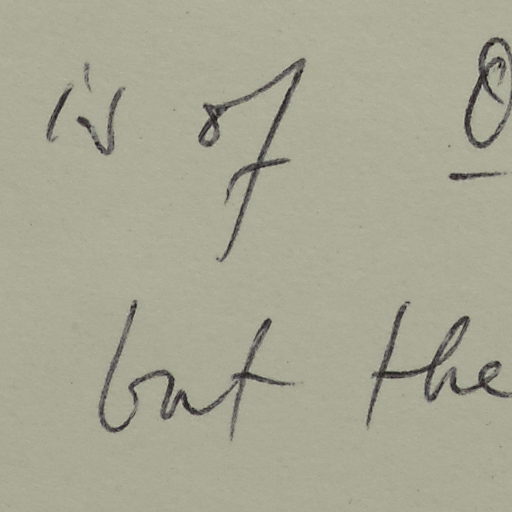 is of
but the